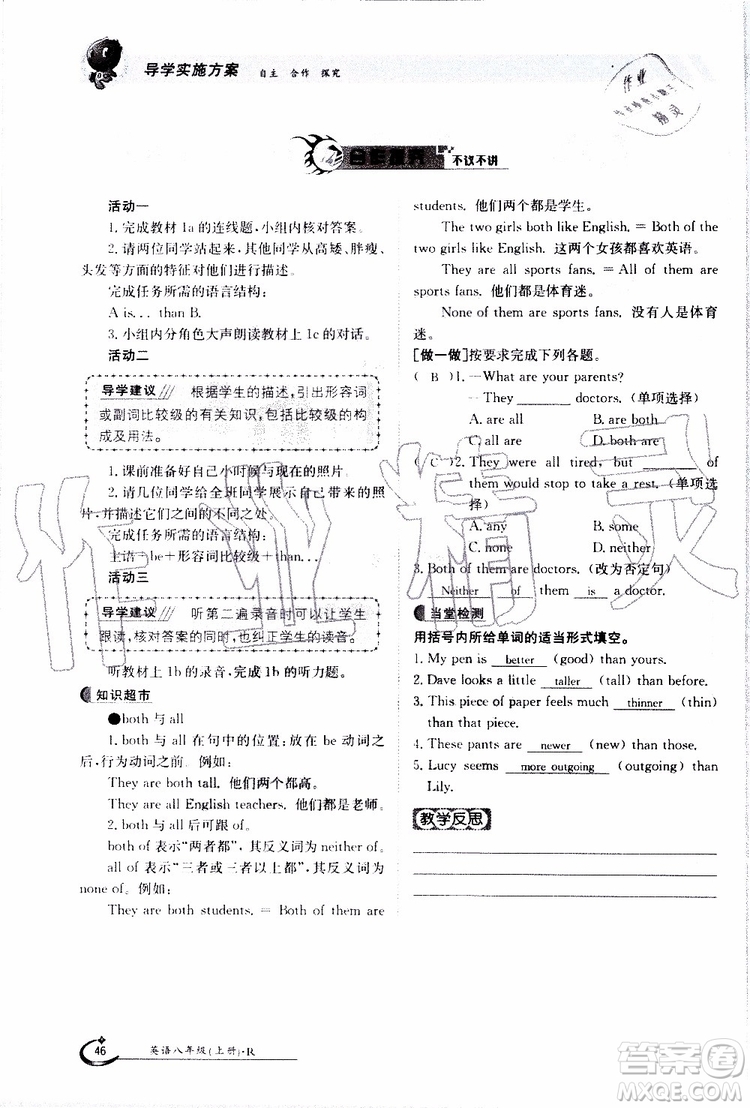 导学实施方案 自主 合作 探究
不议不讲
活动一
1. 完成教材 1a 的连线题，小组内核对答案。
2. 请两位同学站起来，同学们从高矮、胖瘦、
头发等方面的特征对他们进行描述。
完成任务所需的语言结构：
A is... than B.
3. 小组内分角色大声朗读教材上 1c 的对话。
活动二
导学建议 根据学生的描述，引出形容词
或副词比较级的有关知识，包括比较级的构
成及用法。
1. 课前准备好自己小时候与现在的照片。
2. 请几位同学给全班同学展示自己带来的照
片，并描述它们之间的不同之处。
完成任务所需的语言结构：
主语＋be＋形容词比较级＋than...
活动三
导学建议 听第二遍录音时可以让学生
跟读，核对答案的同时，也纠正学生的读音。
听教材上 1b 的录音，完成 1b 的听力题。
知识超市
●both 与 all
1. both 与 all 在句中的位置：放在 be 动词之
后，行为动词之前。例如：
They are both tall. 他们两个都高。
They are all English teachers. 他们都是老师。
2. both 与 all 后可跟 of。
both of 表示“两者都”，其反义词为 neither of。
all of 表示“三者或三者以上都”，其反义词为
none of。例如：
They are both students. = Both of them are
students. 他们两个都是学生。
The two girls both like English. = Both of the
two girls like English. 这两个女孩都喜欢英语。
They are all sports fans. = All of them are
sports fans. 他们都是体育迷。
None of them are sports fans. 没有人是体育
迷。
[做一做]按要求完成下列各题。
( B )1. —What are your parents?
—They ________ doctors. （单项选择）
A. are all B. are both
C. all are D. both are
( C )2. They were all tired, but ________ of
them would stop to take a rest. （单项选
择）
A. any B. some
C. none D. neither
3. Both of them are doctors. （改为否定句）
Neither of them is a doctor.
当堂检测
用括号内所给单词的适当形式填空。
1. My pen is better (good) than yours.
2. Dave looks a little taller (tall) than before.
3. This piece of paper feels much thinner (thin)
than that piece.
4. These pants are newer (new) than those.
5. Lucy seems more outgoing (outgoing) than
Lily.
教学反思
46 英语八年级(上册)·R
作业精灵
答案圈
MXQE.COM